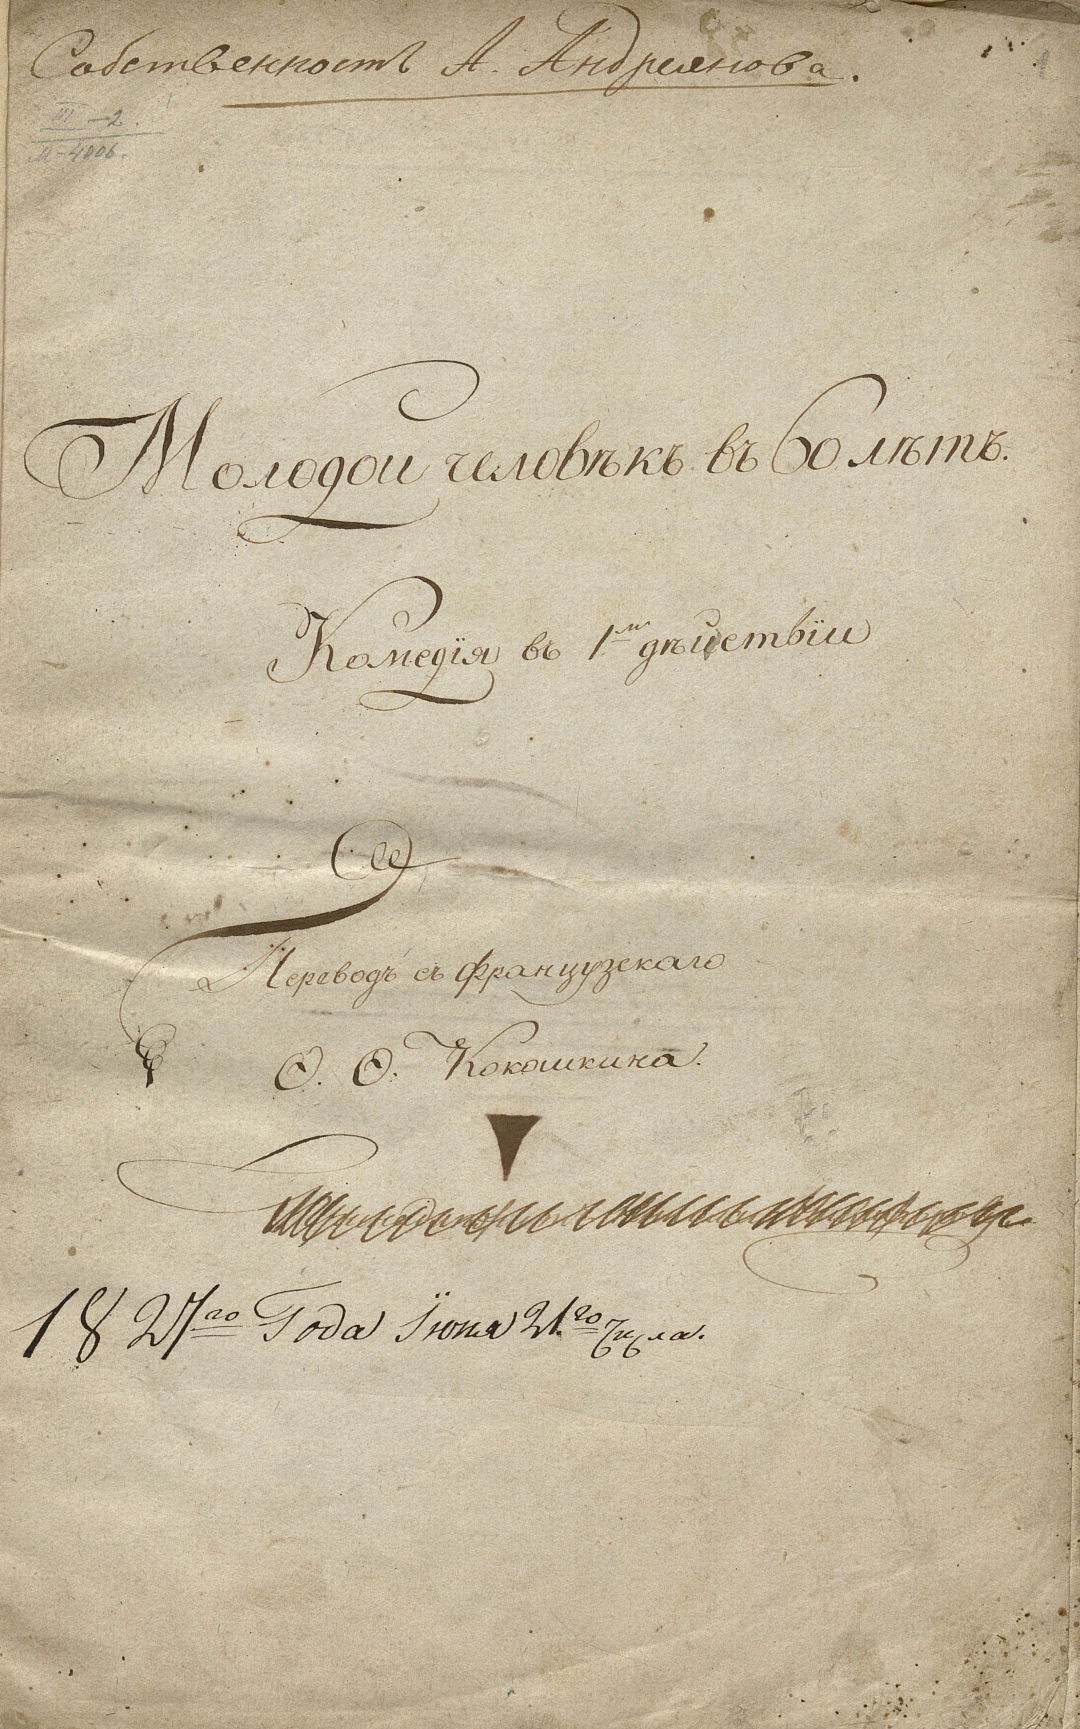 Собственность А. Андреянова.
1
III – 2.
М – 4006.
Молодои человѣкъ въ 60 лѣтъ.
Комедїя въ 1м дѣйствїи
Переводъ съ французскаго
Ѳ. Ѳ. Кокошкина.
1827го Года Їюня 21го Числа.